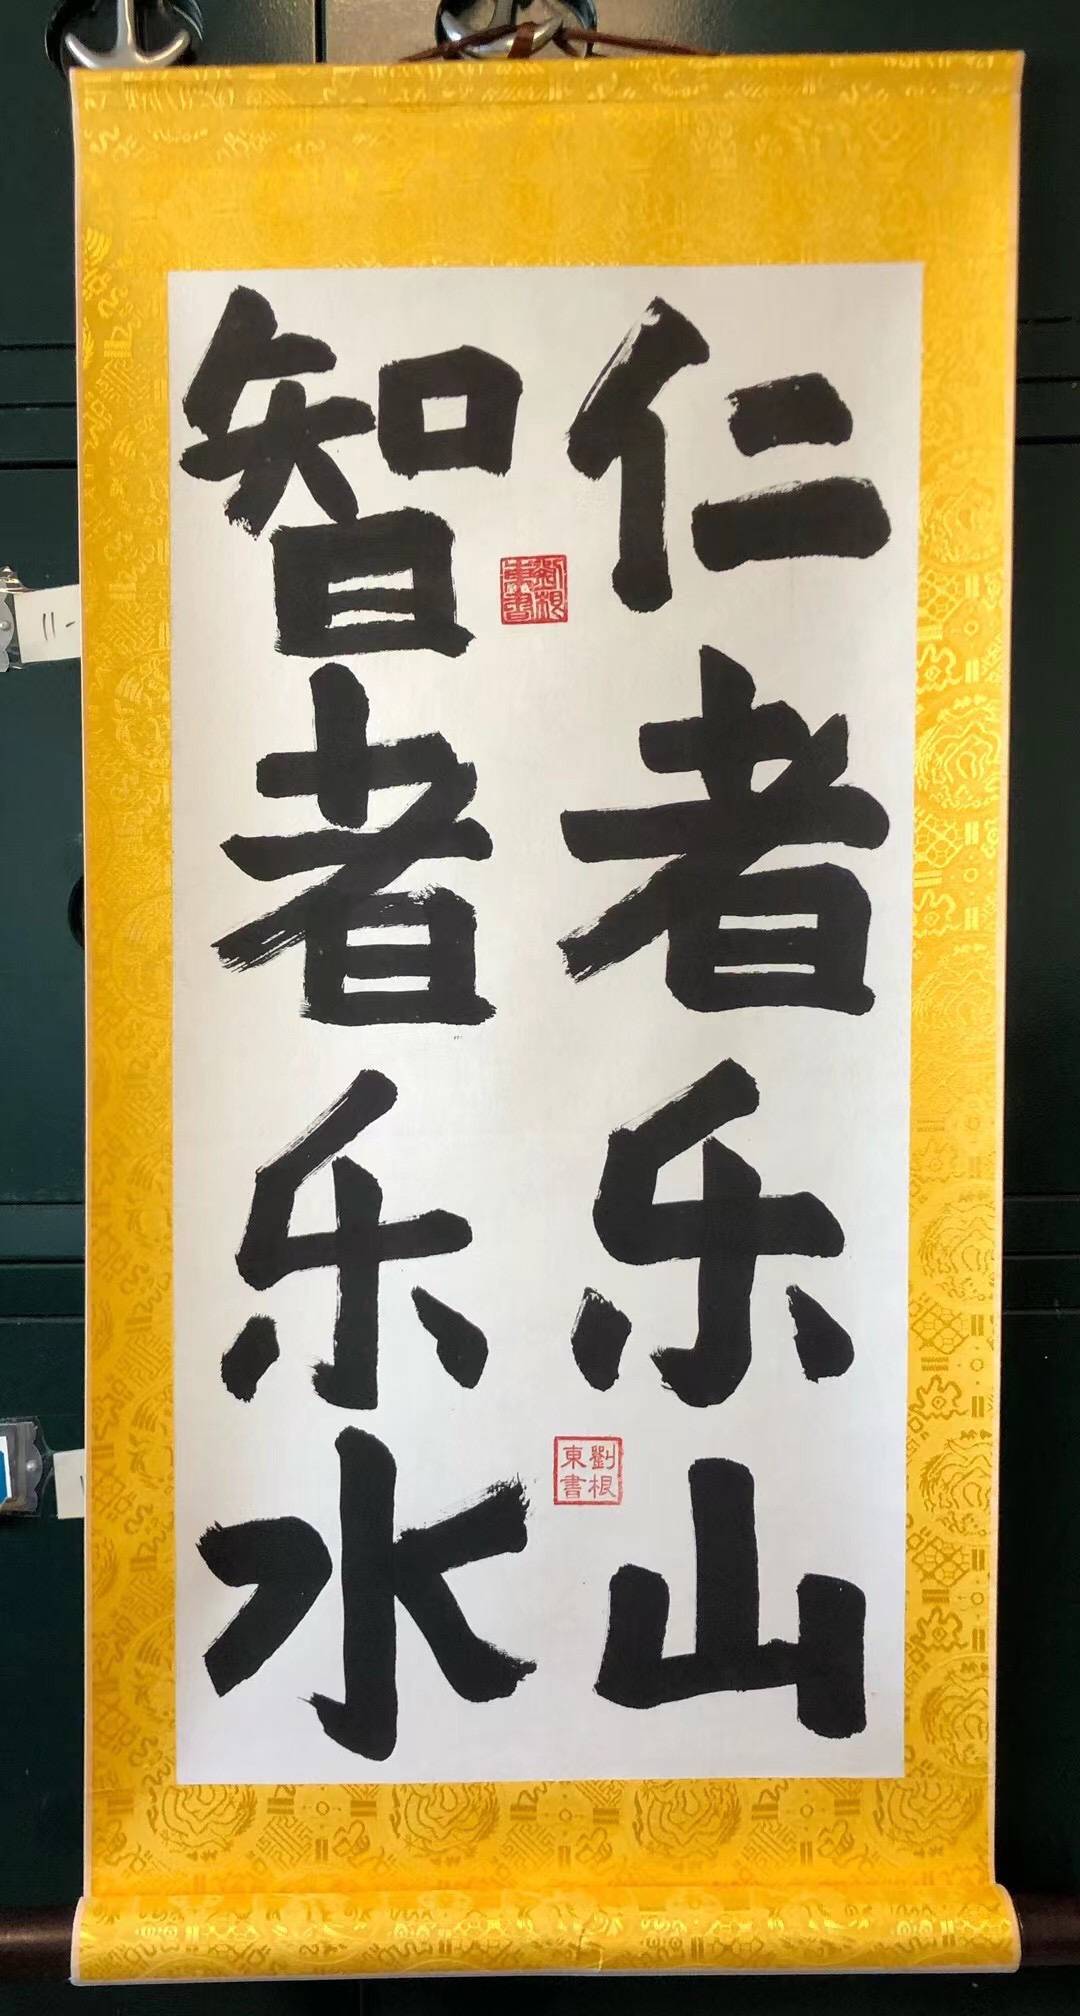 仁者乐山
智者乐水
劉根
東書
劉根
東書